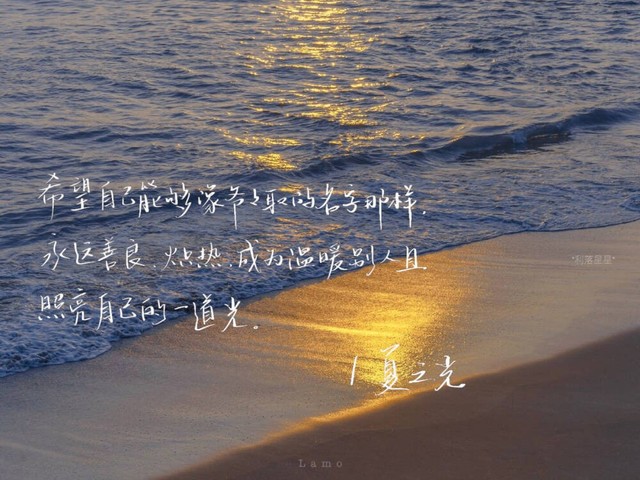 希望自己能够像爷爷取的名字那样,
永远善良、炽热,成为温暖别人且
照亮自己的一道光。
/夏之光
Lamo